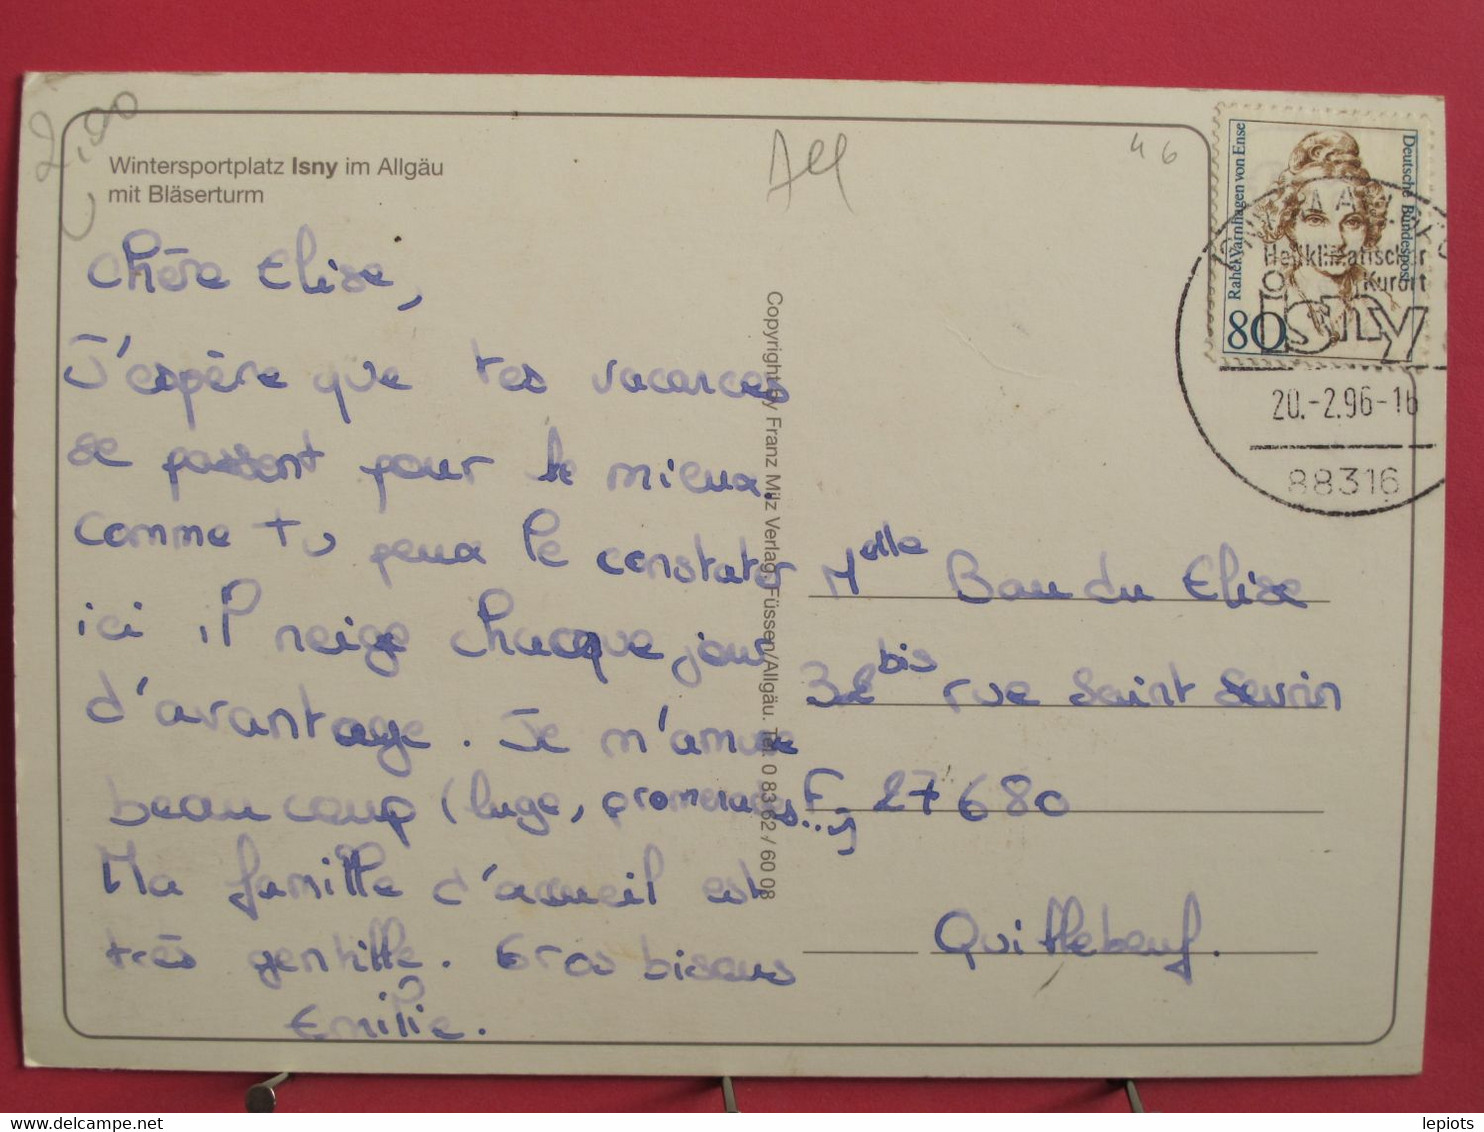 2,00
Wintersportplatz Isny im Allgäu
mit Bläserturm
All
46
Chère Elise,
J'espère que tes vacances
se passent pour le mieux.
Comme tu peux le constater
ici il neige chacque jour
d'avantage. Je m'amuse
beaucoup (luge, promenades...)
Ma famille d'accueil est
très gentille. Gros bisous
Emilie.
Copyright by Franz Milz Verlag, Füssen/Allgäu. Tel. 0 83 62 / 60 08
Rahel Varnhagen von Ense
Deutsche Bundespost
80
Heilklimatischer
Kurort
Isny
20.-2.96-16
88316
Melle Baudu Elise
32 bis rue Saint Seurin
F, 27680
Quillebeuf.
lepiots
www.delcampe.net